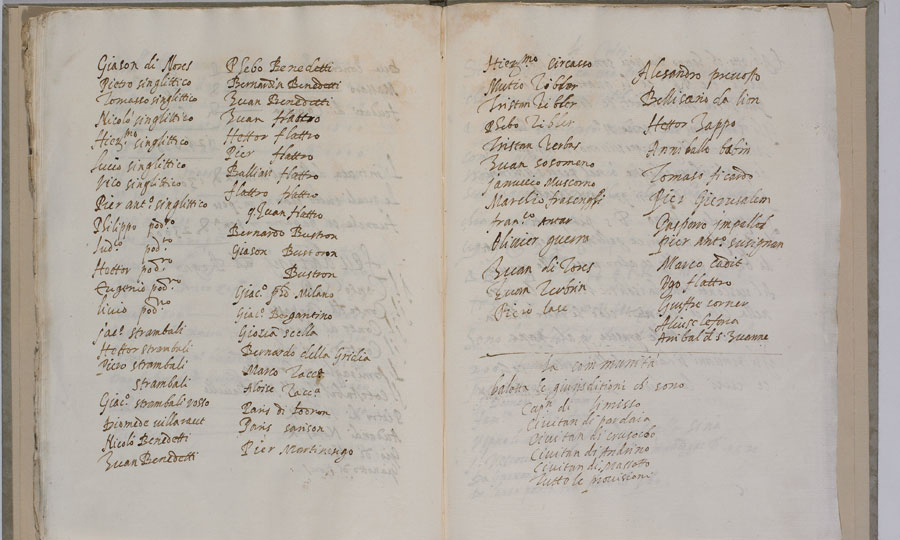 Giason di Nores
Pietro singlittico
Tomasso singlittico
Nicolò singlittico
Hierᵐᵒ singlittico
Lucio singlittico
Vico singlittico
Pier antᵒ singlittico
Philippo podʳᵒ
Ludᶜᵒ podʳᵒ
Hettor podʳᵒ
Eugenio podʳᵒ
Livio podʳᵒ
Jacᵒ strambali
Hettor strambali
Piero strambali
strambali
Giacᵒ strambali rosso
Diomede
Nicolò Benedetti
Zuan Benedetti
Phebo Benedetti
Bernardin Benedetti
Zuan Benedetti
Zuan flattro
Hettor flattro
Pier flattro
Ballian flattro
flattro flattro
qZuan flattro
Bernardo Bustron
Giason Bustoron
Bustron
Giacᵒ Milano
Giacᵒ Bragantino
Bernardo della Gridia
Marco Zaccᵃ
Alvise Zaccᵃ
Paris di lodron
Paris sanson
Pier Martinengo
Hierᵐᵒ Circasso
Mutio Zibler
Tristan Zibler
Phebo Zibler
Tristan Zerbas
Zuan sosomeno
Janucco Muscorno
Marchio
franᶜᵒ Antar
Olivier guerra
Zuan di Tores
Zuan
Piero
Alesandro prevosto
Bellisario da lion
Hettor Zappo
Annibale babin
Tomaso ficardo
Pier Gierusalem
Gasparo
pier antᵒ susignan
Marco cadit
Ugo flattro
Giuffre corner
Anibal d s. Zuanne
La communità
balotta le giurisditioni ch' sono
Capᵒ di limisso
Civitan di
Civitan di crusocho
Civitan di Andrino
Civitan di masotto
Tutto le provisioni